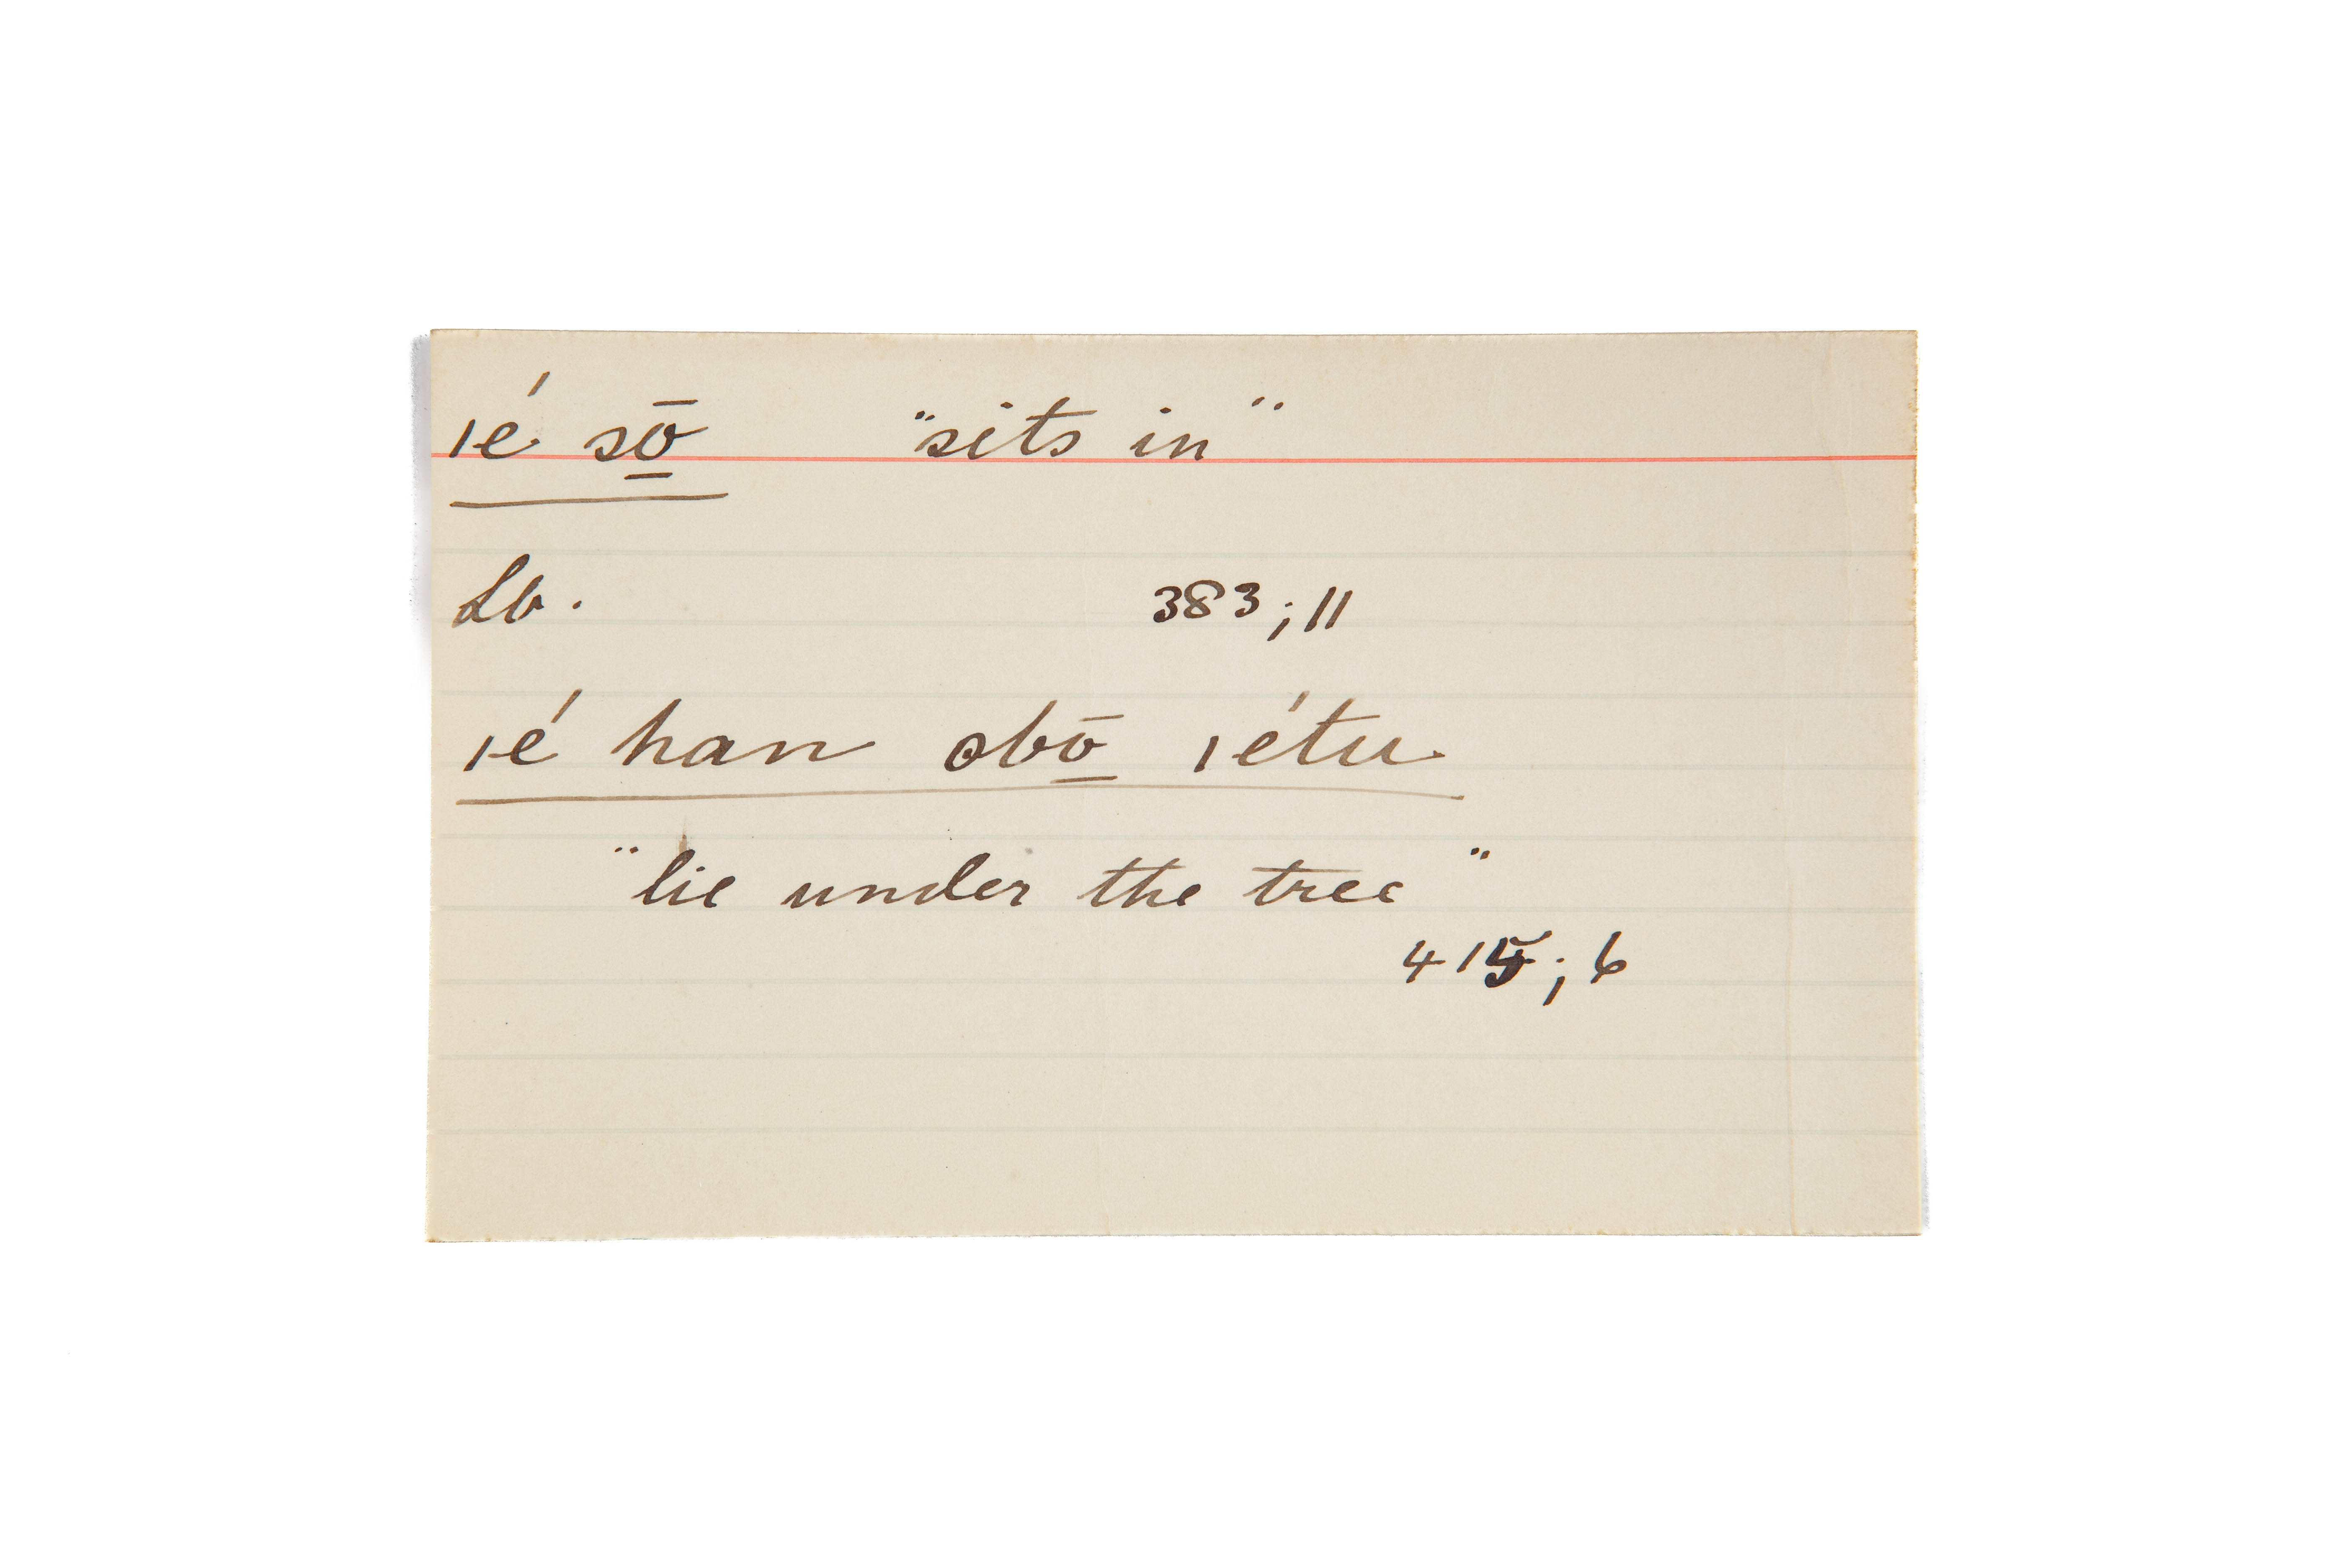 ié sō̠ "sits in"
Lb. 383;11
ié han obō̠ iétu
"lie under the tree"
415;6